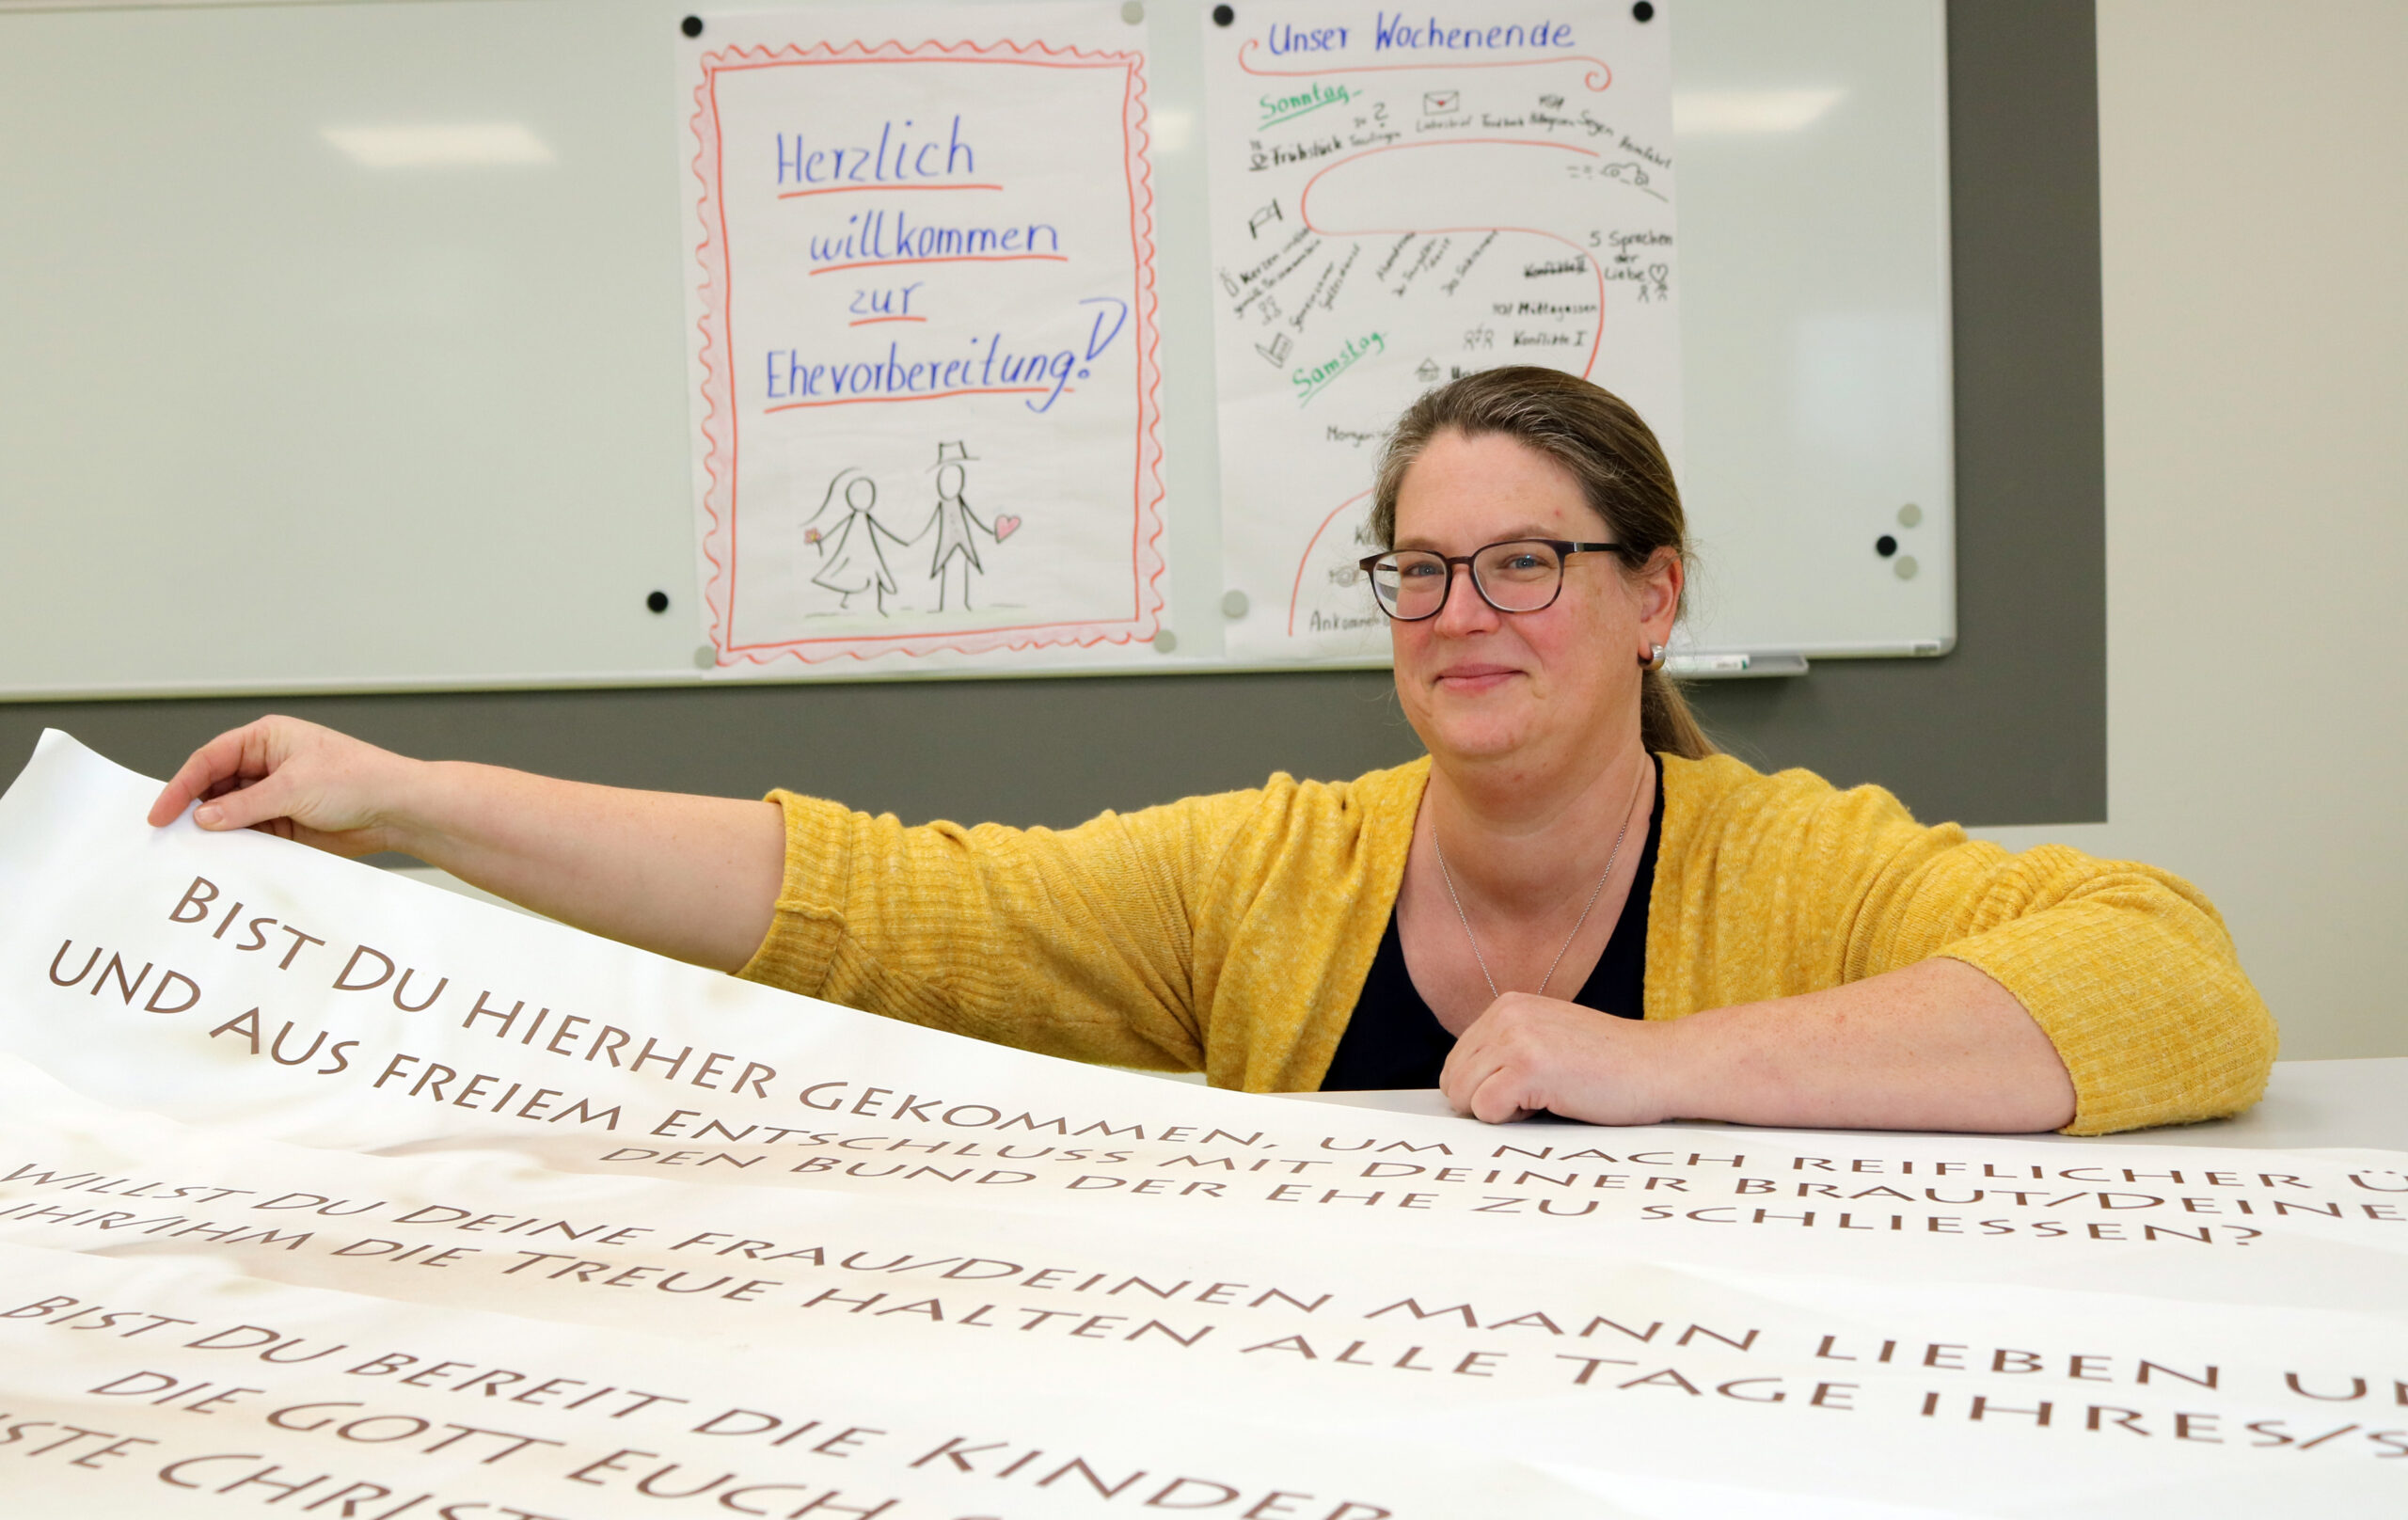 Herzlich
willkommen
zur
Ehevorbereitung!
Unser Wochenende
Sonntag
Frühstück
Liebesbrief Feedback
Segen
Heimfahrt
5 Sprachen
der
Liebe
Kerzen
Konflikte II
Mittagessen
Konflikte I
Samstag
Morgen
Ankommen
BIST DU HIERHER GEKOMMEN, UM NACH REIFLICHER Ü
UND AUS FREIEM ENTSCHLUSS MIT DEINER BRAUT/DEINE
DEN BUND DER EHE ZU SCHLIESSEN?
WILLST DU DEINE FRAU/DEINEN MANN LIEBEN U
IHR/IHM DIE TREUE HALTEN ALLE TAGE IHRES/S
BIST DU BEREIT DIE KINDER
DIE GOTT EUCH
STE CHRIST